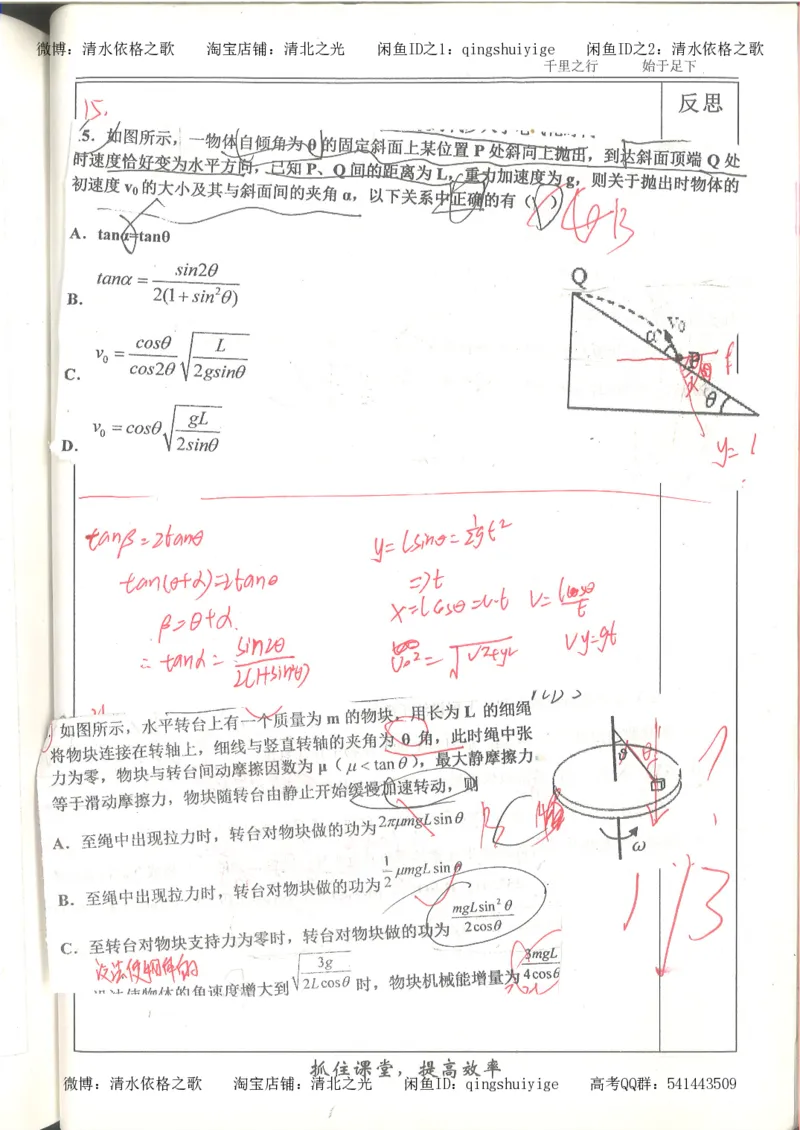 微博：清水依格之歌 淘宝店铺：清北之光 闲鱼ID之1：qingshuiyige 闲鱼ID之2：清水依格之歌
千里之行 始于足下
反思
15.
5. 如图所示，一物体自倾角为 θ 的固定斜面上某位置 P 处斜向上抛出，到达斜面顶端 Q 处
时速度恰好变为水平方向，已知 P、Q 间的距离为 L，重力加速度为 g，则关于抛出时物体的
初速度 v₀ 的大小及其与斜面间的夹角 α，以下关系中正确的有（ ）
A．tanα=tanθ
B． tanα = sin2θ / 2(1+sin²θ)
C． v₀ = cosθ/cos2θ √(L/2gsinθ)
D． v₀ = cosθ √(gL/2sinθ)
Q
v₀
α
P
θ
tanβ=2tanθ
tan(θ+α)=2tanθ
β=θ+α.
∴ tanα = sin2θ / 2(1+sin²θ)
y=Lsinθ=½gt²
⇒t
x=Lcosθ=v·t v=Lcosθ/t
vy=gt
如图所示，水平转台上有一个质量为 m 的物块，用长为 L 的细绳
将物块连接在转轴上，细线与竖直转轴的夹角为 θ 角，此时绳中张
力为零，物块与转台间动摩擦因数为 μ（μ<tanθ），最大静摩擦力
等于滑动摩擦力，物块随转台由静止开始缓慢加速转动，则
A．至绳中出现拉力时，转台对物块做的功为2πμmgLsinθ
B．至绳中出现拉力时，转台对物块做的功为 1/2 μmgLsinθ
C．至转台对物块支持力为零时，转台对物块做的功为 mgLsin²θ / 2cosθ
设法使物体的角速度增大到 √(3g/2Lcosθ) 时，物块机械能增量为 3mgL/4cosθ
θ
ω
抓住课堂，提高效率
微博：清水依格之歌 淘宝店铺：清北之光 闲鱼ID：qingshuiyige 高考QQ群：541443509